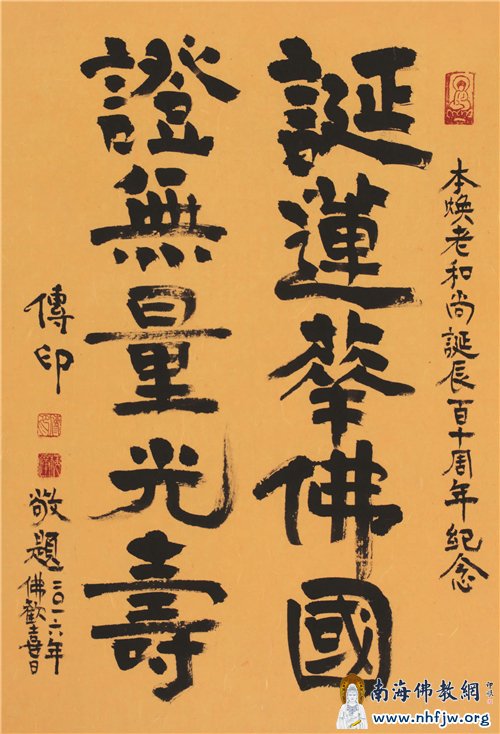 本煥老和尚誕辰百十周年纪念
誕蓮華佛國
證無量光壽
傳印
敬題
二〇一六年
佛歡喜日
南海佛教網
www.nhfjw.org